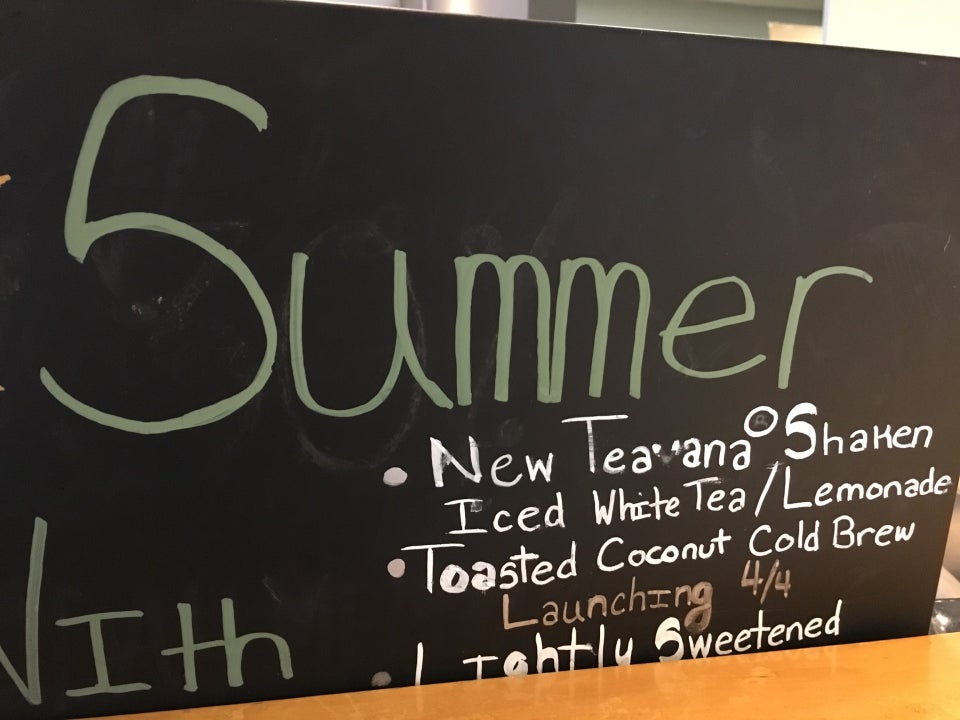 Summer
With
• New Teavana® Shaken
Iced White Tea/Lemonade
• Toasted Coconut Cold Brew
Launching 4/4
• Lightly Sweetened